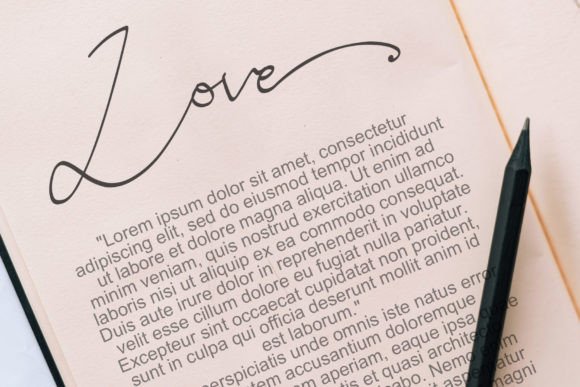 Love
"Lorem ipsum dolor sit amet, consectetur
adipiscing elit, sed do eiusmod tempor incididunt
ut labore et dolore magna aliqua. Ut enim ad
minim veniam, quis nostrud exercitation ullamco
laboris nisi ut aliquip ex ea commodo consequat.
Duis aute irure dolor in reprehenderit in voluptate
velit esse cillum dolore eu fugiat nulla pariatur.
Excepteur sint occaecat cupidatat non proident,
sunt in culpa qui officia deserunt mollit anim id
est laborum."
perspiciatis unde omnis iste natus error
accusantium doloremque
aperiam, eaque ipsa quae
et quasi architecto
Nemo enim
aspernatur
magni